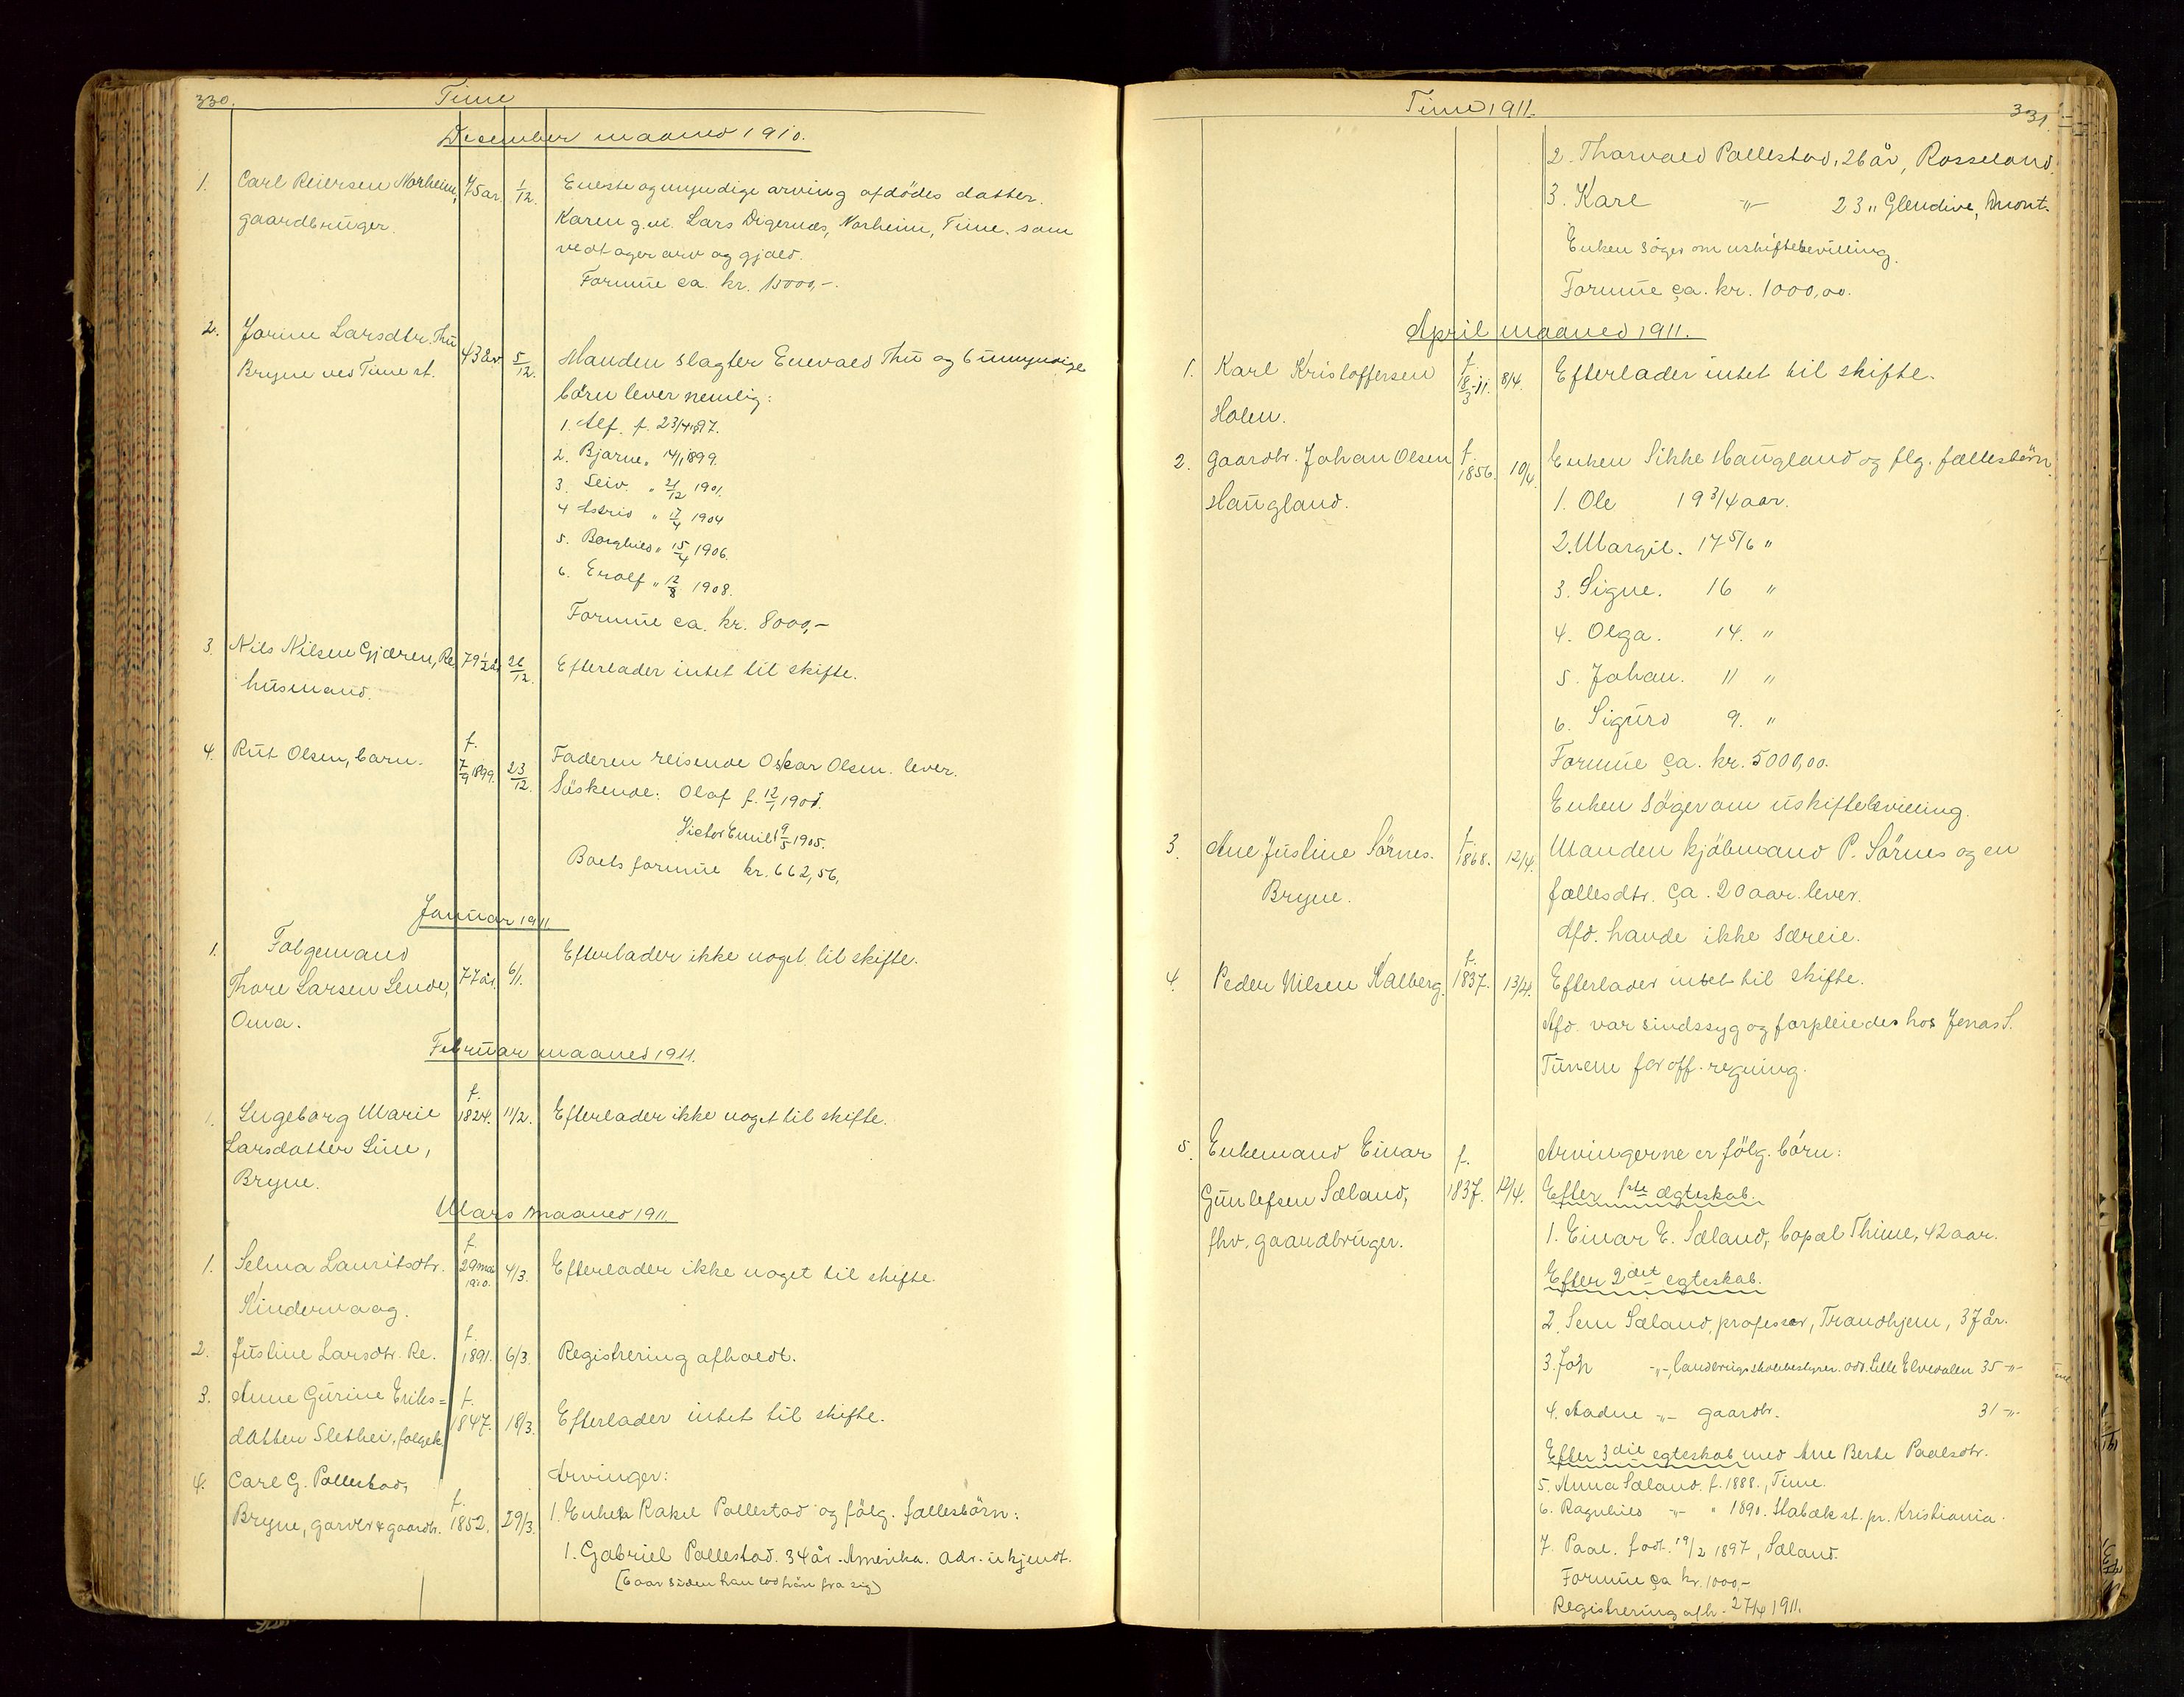 330.
Time
December maaned 1910.
1. Carl Reiersen Norheim, 75 ar. 1/12. Eneste og myndige arving afdödes datter.
gaardbrüger. Karen g.m. Lars Digernæs, Norheim, Time. som
vedtager arv og gjæld.
Formüe ca. kr. 15000,-.
2. Jorine Larsdtr. Thü 43 år 5/12. Manden slagter Enevald Thü og 6 ümyndige
Bryne ved Time st. börn lever nemlig:
1. Alf. f. 23/4 1897.
2. Bjarne " 14/1 1899.
3. Leiv. " 21/12 1901.
4 Astrid " 17/4 1904
5. Borghild " 15/4 1906.
6. Erolf " 12/8 1908.
Formüe ca. kr. 8000,-
3. Nils Nilsen Gjæren, Re 79 1/2 år 26/12. Efterlader intet til skifte.
hüsmand.
4. Rüt Olsen, barn. f. 7/9 1899. 23/12. Faderen reisende Oskar Olsen. lever.
Söskende: Olaf f. 12/1 1901.
Victor Emil 19/5 1905.
Boets formüe kr. 662,56,
Janüar 1911
1. Folgemand
Thore Larsen Lende, 77 år. 6/1. Efterlader ikke noget til skifte.
Oma.
Febrüar maaned 1911.
1. Ingeborg Marie f. 1824. 11/2. Efterlader ikke noget til skifte.
Larsdatter Line,
Bryne.
Mars maaned 1911.
1. Selma Lauritsdtr. f. 29 mai 1910. 4/3. Efterlader ikke noget til skifte.
Kindervaag.
2. Jüstine Larsdtr. Re. f. 1891. 6/3. Registrering afholdt.
3. Anne Gürine Eriks= f. 1847. 18/3. Efterlader intet til skifte.
datter Slethei, folgek.
4. Carl G. Pollestad, Arvinger:
Bryne, garver & gaardbr. f. 1852. 29/3. 1. Enken Rakel Pollestad og fölg. fællesbörn:
1. Gabriel Pollestad. 34 år. Amerika. Adr. ükjendt.
(6 aar siden han lod höre fra sig)
Time 1911.
331.
2. Thorvald Pollestad, 26 år, Rosseland.
3. Karl -"- 23 " Glendive, Mont.
Enken söger om uskiftebevilling.
Formüe ca. kr. 1000,00.
April maaned 1911.
1. Karl Kristoffersen f. 18/3-11. 8/4. Efterlader intet til skifte.
Holen.
2. Gaardbr. Johan Olsen f. 1856. 10/4. Enken Sikke Haügland og flg. fællesbörn.
Haügland. 1. Ole 19 3/4 aar.
2. Margit. 17 5/6 "
3. Signe. 16 "
4. Olga. 14. "
5. Johan. 11 "
6. Sigürd 9. "
Formüe ca. kr. 5000,00.
Enken söger om üskiftebevilling.
3. Ane Jüstine Sörnes. f. 1868. 12/4. Manden kjöbmand P. Sörnes og en
Bryne. fællesdtr. ca. 20 aar. lever.
Afd. havde ikke særeie.
4. Peder Nilsen Kalberg. f. 1837. 13/4. Efterlader intet til skifte.
Afd. var sindssyg og forpleiedes hos Jonas S.
Tünem for off. regning.
5. Enkemand Einar f. 1837. 12/4. Arvingerne er fölg. börn:
Günlefsen Sæland, Efter 1ste ægteskab.
fhv. gaardbrüger. 1. Einar E. Sæland, Copal Thime, 42 aar.
Efter 2det egteskab.
2. Sem Sæland, professor, Trondhjem, 37 år.
3. Joh -"-, landbrugsskolebestyrer. adr. Lille Elvedalen 35 -"-
4. Aadne -"- gaardbr. 31 -"-
Efter 3die egteskab med Ane Berte Paalsdtr.
5. Anna Sæland. f. 1888., Time.
6. Ragnhild -"- " 1890. Stabæk st. pr. Kristiania.
7. Paal. födt. 19/2 1897, Sæland.
Formüe ca kr. 1000,-
Registrering afh. 27/4 1911.